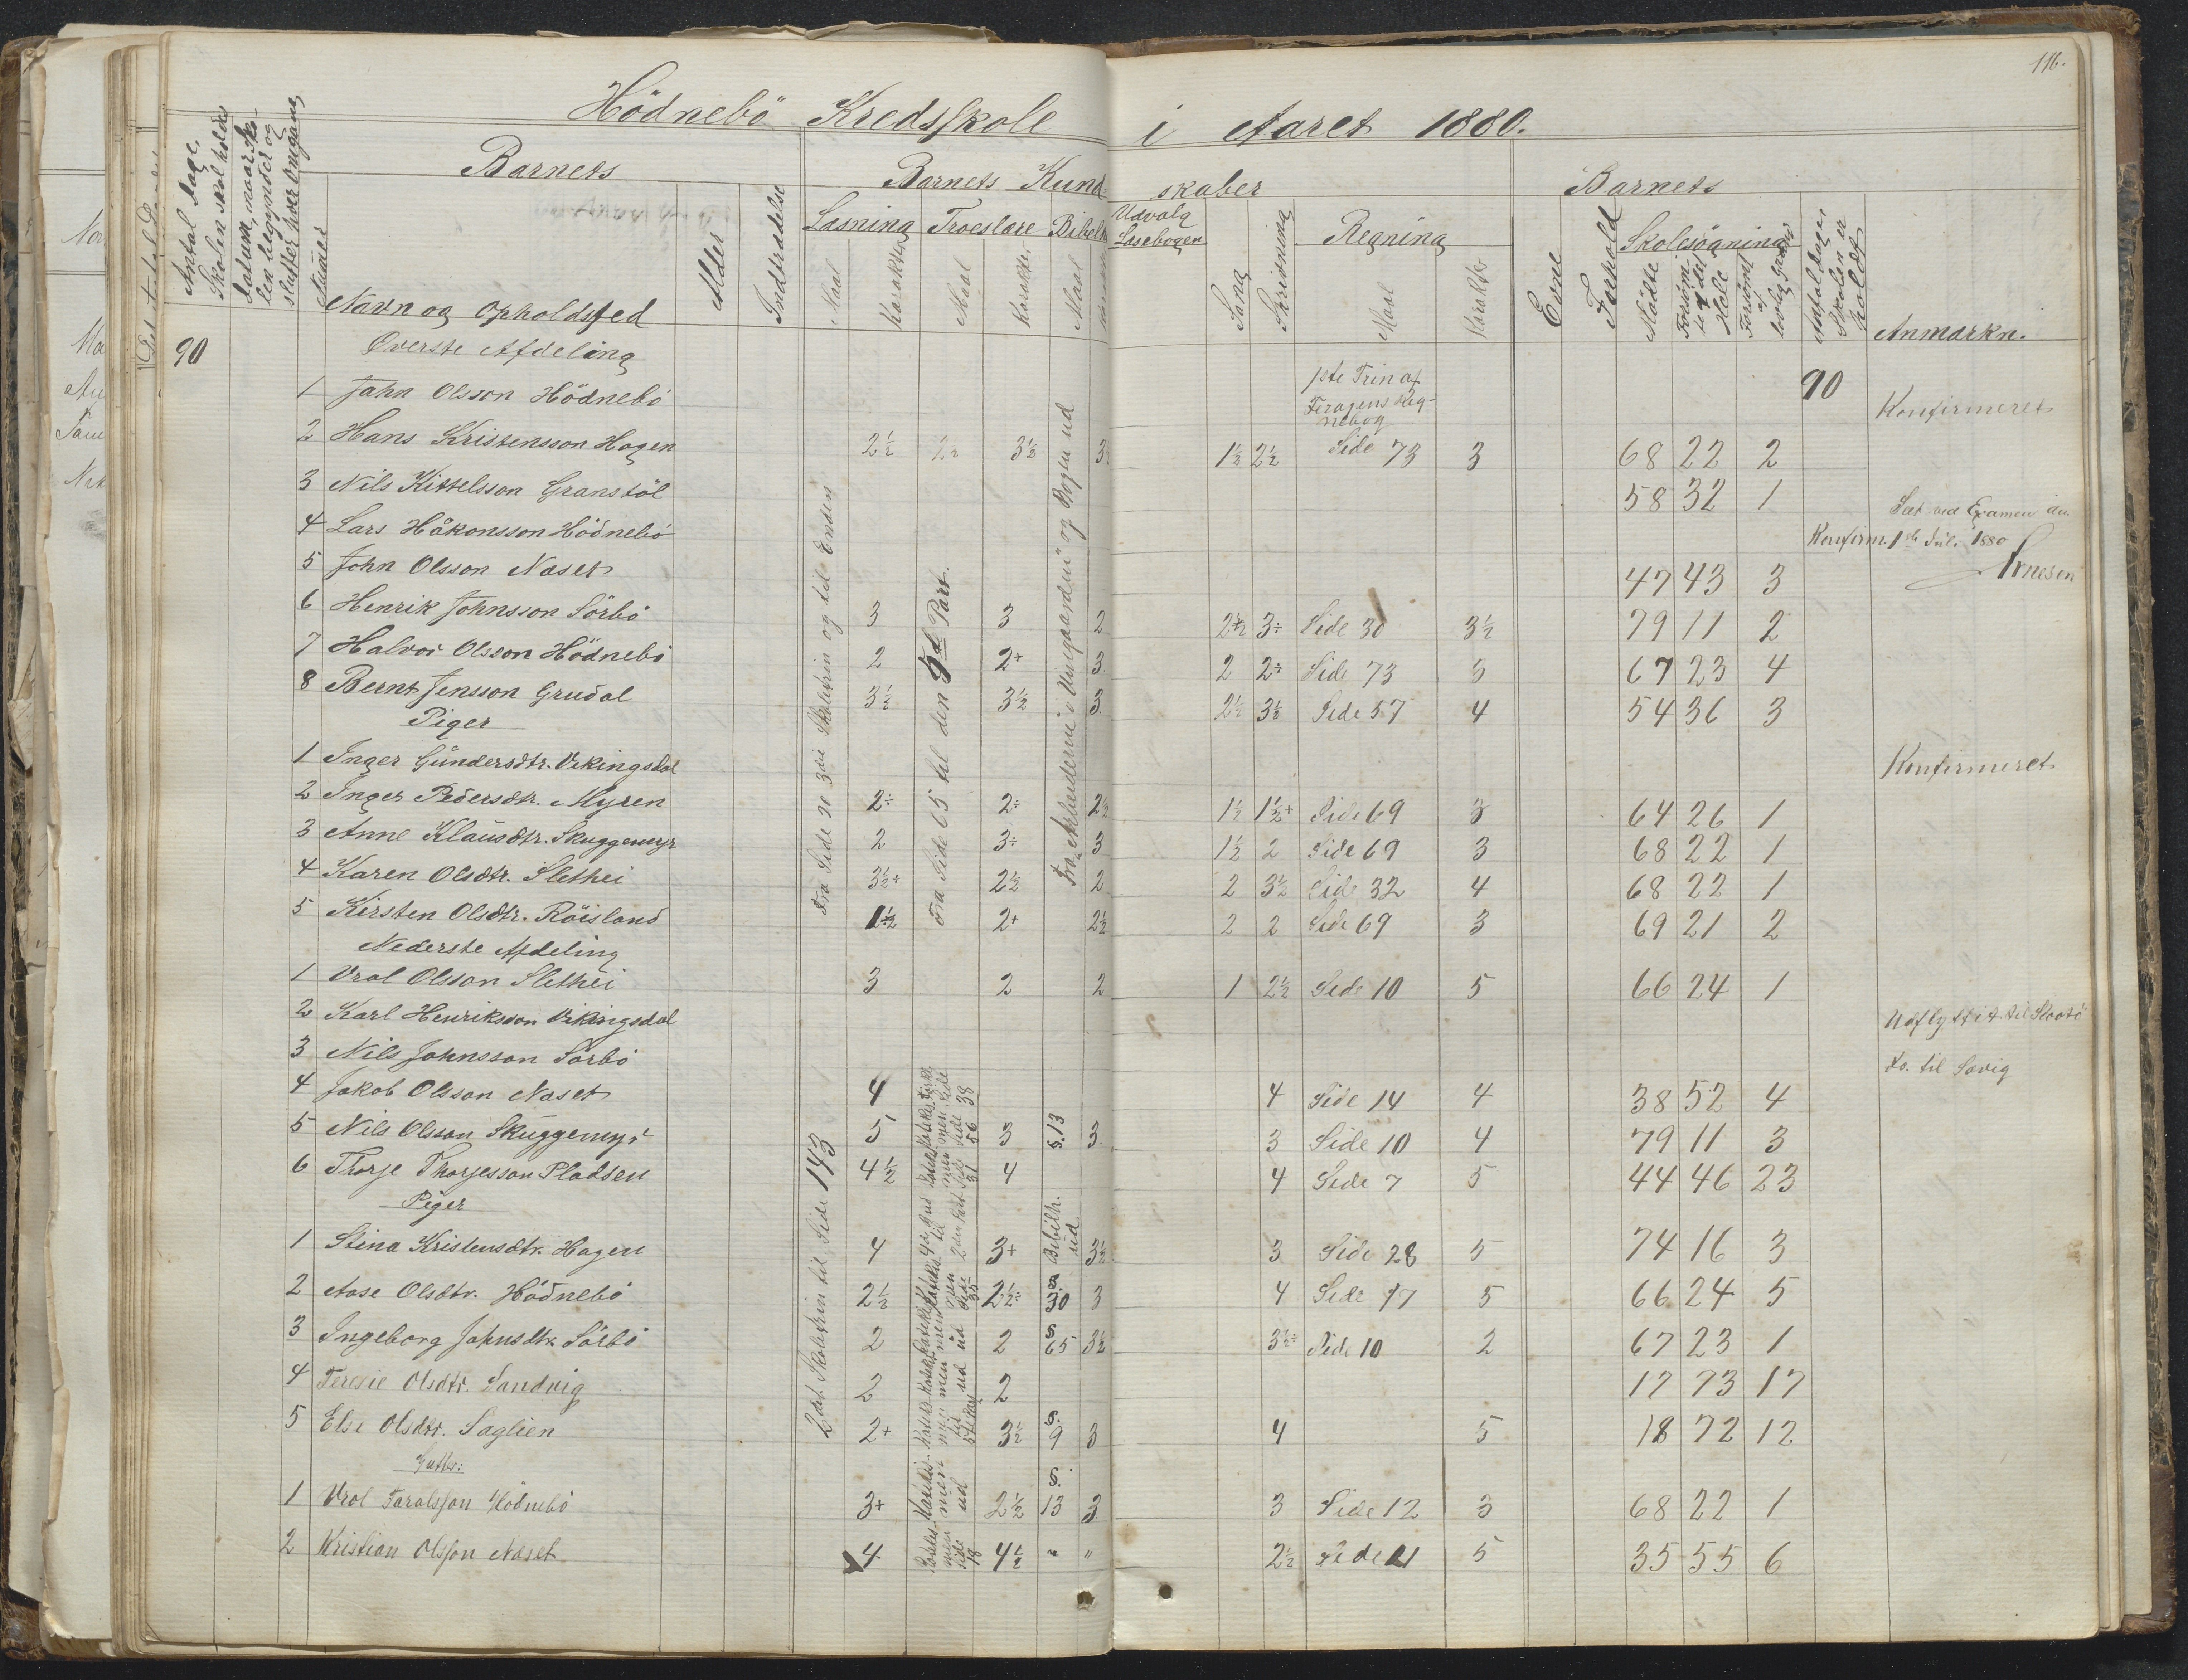 116.
Hödnebö Kredsskole i Aaret 1880.
Antal Dage, Skolen skal holdes
Datum, naar Skolen begynder og slutter hver Omgang
Barnets
Numer
Navn og Opholdsted
Alder
Indtrædelse
Barnets Kundskaber
Læsning Troeslære Bibelh
Maal Karakter Maal Karakter Maal
Udvalg Læsebogen
Sang
Skrivning
Regning
Maal Karakter
Barnets
Evne
Forhold
Skolesøgning
Mødte
Forsømte i det Hele
Forsømt af lovlig Grund
Antal Dage Skolen er holdt
Anmærkn.
90 Øverste Afdeling
1ste Trin af
90
1 John Olsson Hödnebö Konfirmeret
2 Hans Kristensson Hagen 2½ 2½ 3½ 3 1½ 2½ Side 73 3 68 22 2
3 Nils Kittelsson Granstöl 58 32 1
Set ved Examen den
4 Lars Håkonsson Hödnebö Konfirm. 1ste Juli 1880
5 John Olsson Næset 47 43 3 Arnesen
6 Henrik Johnsson Sörbö 3 3 2 2½ 3÷ Side 30 3½ 79 11 2
7 Halvor Olsson Hödnebö 2 2+ 3 2 2÷ Side 73 3 67 23 4
8 Bernt Jensson Grudal 3½ 3½ 3 2½ 3½ Side 57 4 54 36 3
Piger
1 Inger Gundersdtr. Vikingsdal Konfirmeret
2 Inger Pedersdtr. Myren 2÷ 2÷ 2½ 1½ 1½+ Side 69 3 64 26 1
3 Anne Klausdtr. Skuggemyr 2 3÷ 3 1½ 2 Side 69 3 68 22 1
4 Karen Olsdtr. Slethei 3½+ 2½ 2 2 3½ Side 32 4 68 22 1
5 Kirsten Olsdtr. Röisland 1½ 2+ 2½ 2 2 Side 69 3 69 21 2
Fra Side 20 3die Skoletrin og til Enden
Fra Side 65 til den 5te Part.
Nederste Afdeling
1 Vrol Olsson Slethei 3 2 2 1 2½ Side 10 5 66 24 1
2 Karl Henriksson Vikingsdal Udflyttet til
3 Nils Johnsson Sörbö do. til Søvig
4 Jakob Olsson Næset 4 4 Side 14 4 38 52 4
5 Nils Olsson Skuggemyr 5 3 §.13 3 3 Side 10 4 79 11 3
6 Thorje Thorjesson Pladsen 4½ 4 4 Side 7 5 44 46 23
Piger
1 Stina Kristensdtr. Hagen 4 3+ Bibelh. ud. 3½ 3 Side 28 5 74 16 3
2 Aase Olsdtr. Hödnebö 2½ 2½÷ § 30 3 4 Side 17 5 66 24 5
3 Ingeborg Johnsdtr. Sörbö 2 2 § 65 3½ 3½÷ Side 10 2 67 23 1
4 Teresie Olsdtr. Sandvig 2 2 17 73 17
5 Else Olsdtr. Saglien 2+ 3½ §. 9 3 4 5 18 72 12
2det Skoletrin til Side 143
Gutter:
1 Vrol Taralsson Hödnebö 3+ 2½ §. 13 3 3 Side 12 3 68 22 1
2 Kristian Olsson Næset 4 4½ " " 2½ Side 21 5 35 55 6